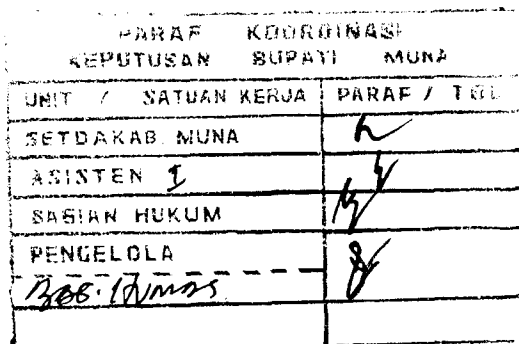 PARAF KOORDINASI
KEPUTUSAN BUPATI MUNA
UNIT / SATUAN KERJA PARAF / TGL
SETDAKAB. MUNA
ASISTEN I
BAGIAN HUKUM
PENGELOLA